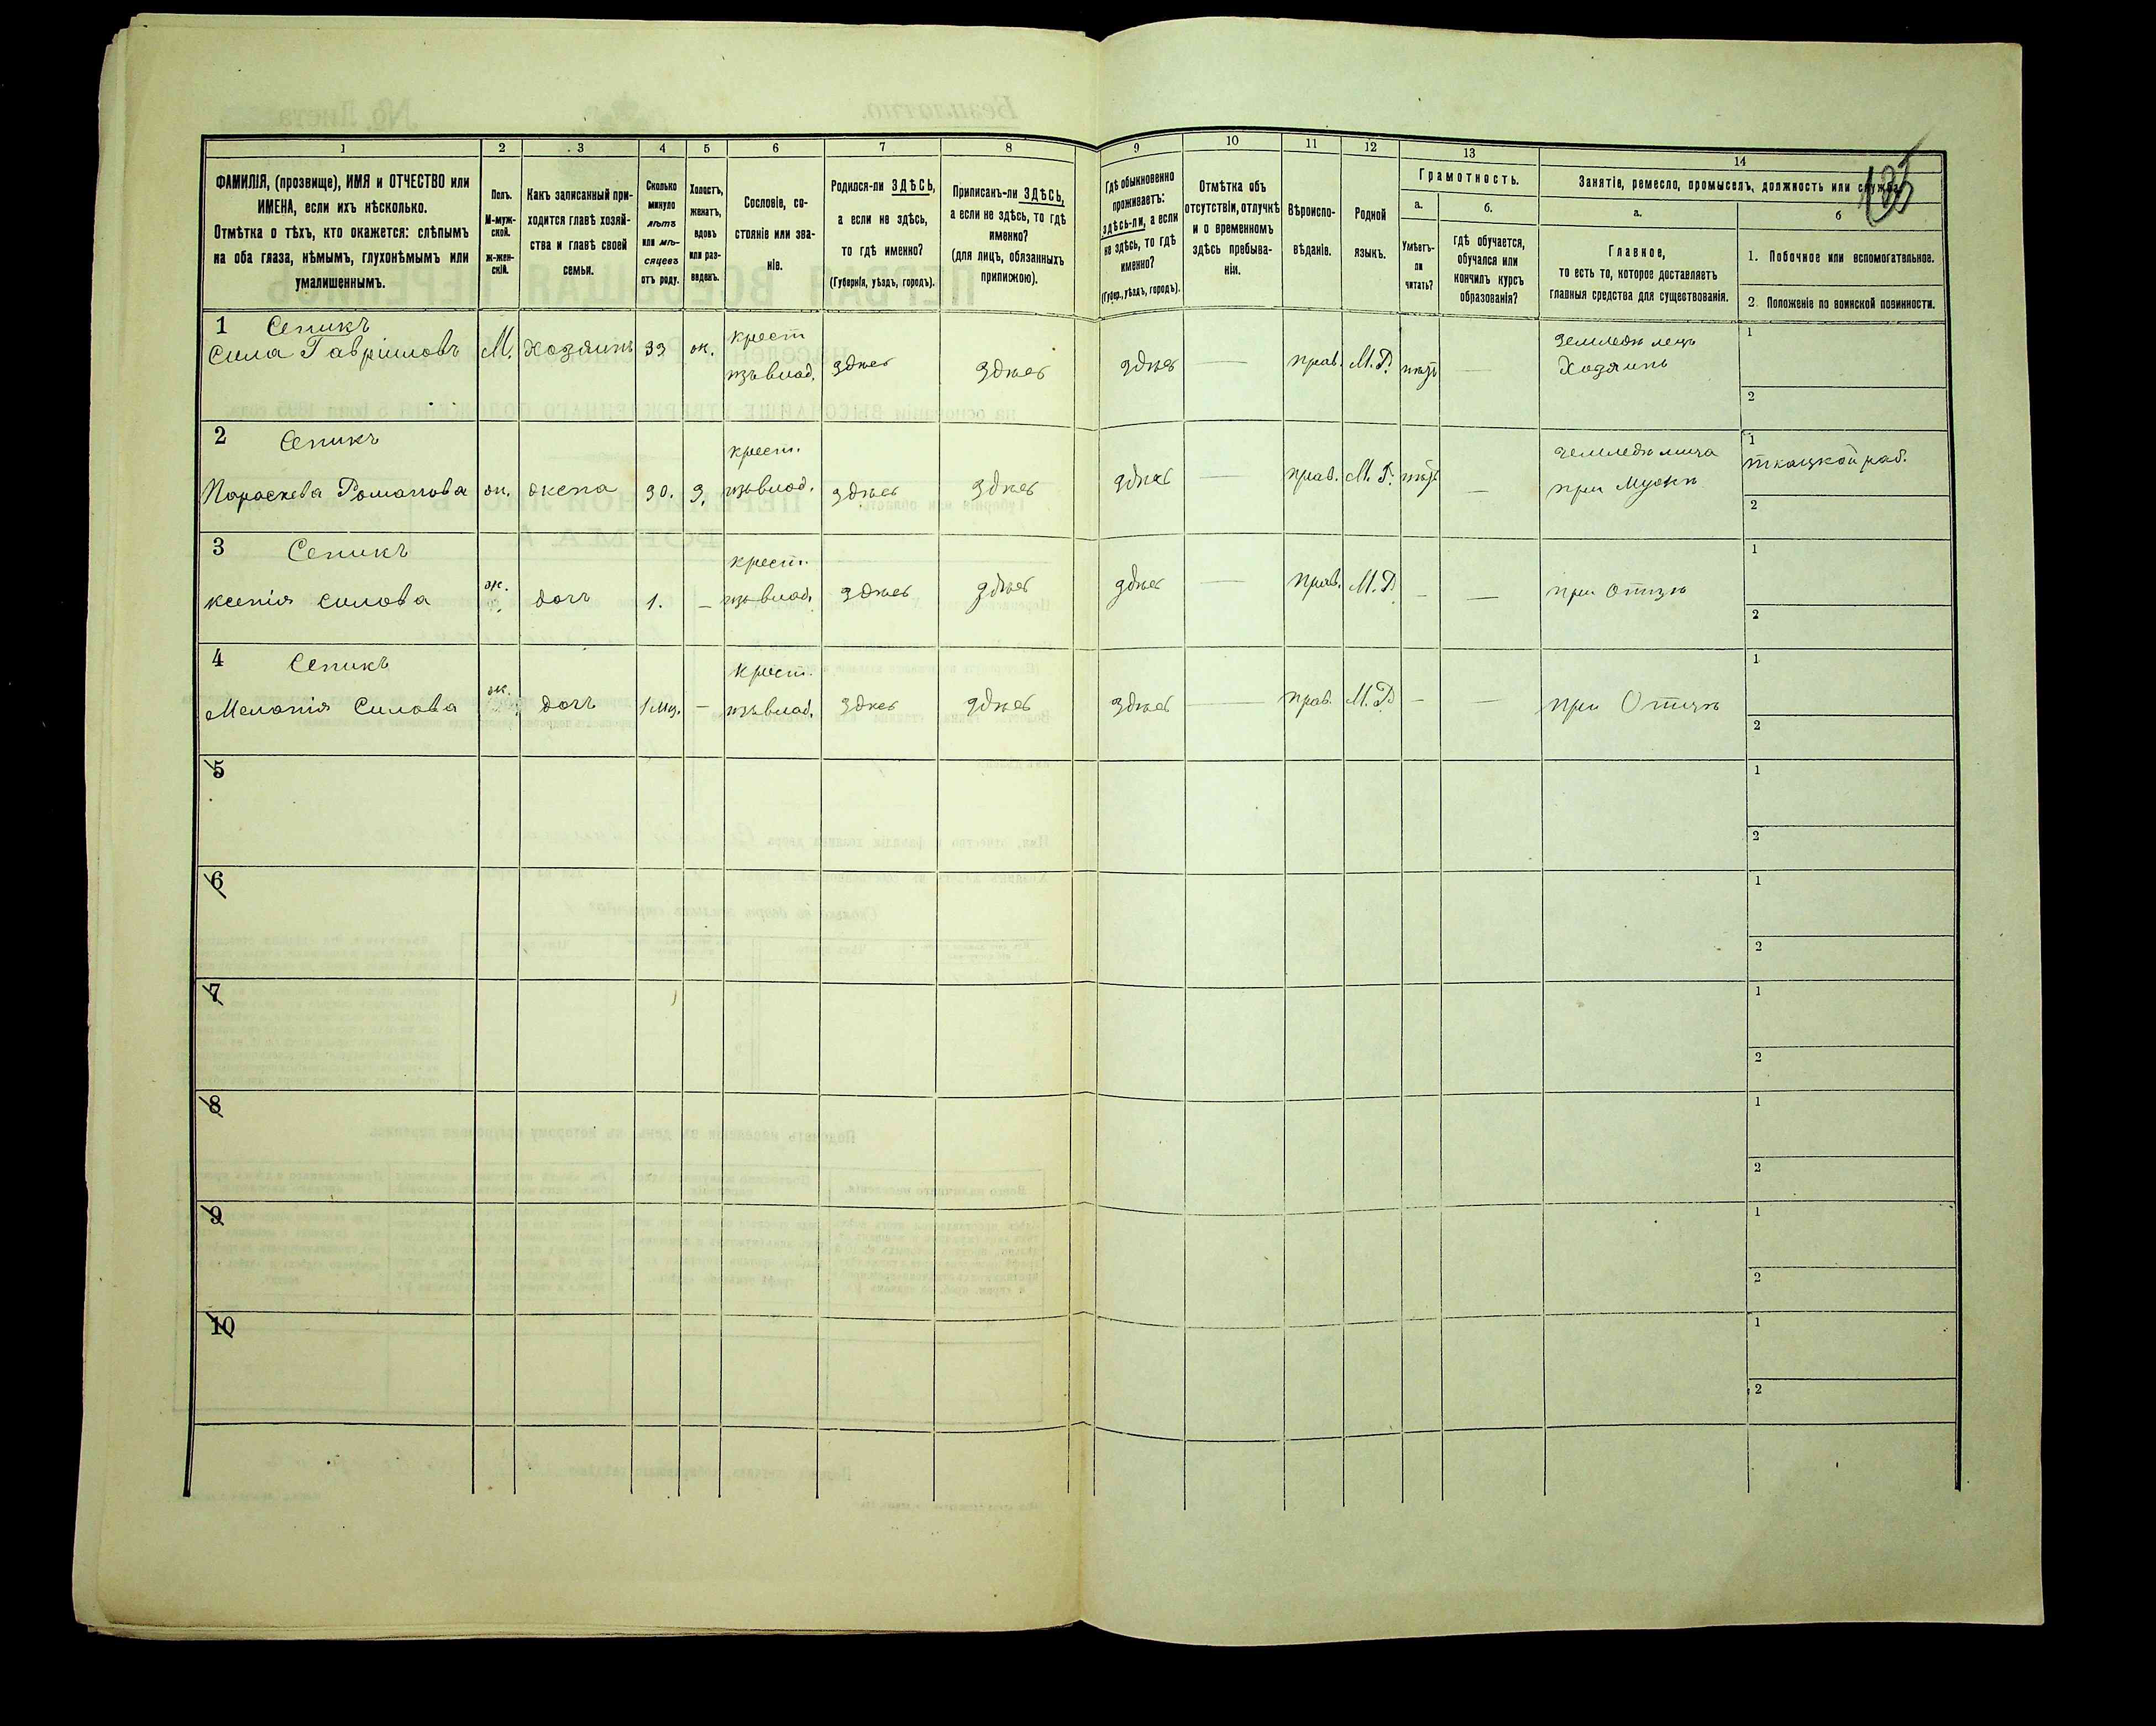 135
1 2 3 4 5 6 7 8 9 10 11 12 13 14
ФАМИЛІЯ, (прозвище), ИМЯ и ОТЧЕСТВО или
ИМЕНА, если ихъ нѣсколько.
Отмѣтка о тѣхъ, кто окажется: слѣпымъ
на оба глаза, нѣмымъ, глухонѣмымъ или
умалишеннымъ.
Полъ.
М-муж-
ской.
ж-жен-
скій.
Какъ записанный при-
ходится главѣ хозяй-
ства и главѣ своей
семьи.
Сколько
минуло
лѣтъ
или мѣ-
сяцевъ
отъ роду.
Холостъ,
женатъ,
вдовъ
или раз-
веденъ.
Сословіе, со-
стояніе или зва-
ніе.
Родился-ли ЗДѢСЬ,
а если не здѣсь,
то гдѣ именно?
(Губернія, уѣздъ, городъ).
Приписанъ-ли ЗДѢСЬ,
а если не здѣсь, то гдѣ
именно?
(для лицъ, обязанныхъ
припискою).
Гдѣ обыкновенно
проживаетъ:
здѣсь-ли, а если
не здѣсь, то гдѣ
именно?
(Губер., уѣздъ, городъ).
Отмѣтка объ
отсутствіи, отлучкѣ
и о временномъ
здѣсь пребыва-
ніи.
Вѣроиспо-
вѣданіе.
Родной
языкъ.
Грамотность.
а.
Умѣетъ-
ли
читать?
б.
гдѣ обучается,
обучался или
кончилъ курсъ
образованія?
Занятіе, ремесло, промыселъ, должность или служба.
а.
Главное,
то есть то, которое доставляетъ
главныя средства для существованія.
б
1. Побочное или вспомогательное.
2. Положеніе по воинской повинности.
1 Сепикъ
Сила Гавріиловъ М. Хозяинъ 33 ж. крест
изъ влад. здѣсь здѣсь здѣсь — прав. М.Р. нѣтъ — земледѣлецъ
Хозяинъ
1
2
2 Сепикъ
Параскева Романова ж. жена 30. З. крест.
изъ влад. здѣсь здѣсь здѣсь — прав. М.Р. нѣтъ — земледѣлица
при Мужѣ
1 ткацкой раб.
2
3 Сепикъ
ксенія силова ж. дочь 1. — крест.
изъ влад. здѣсь здѣсь здѣсь — прав. М.Р. — — при отцѣ
1
2
4 Сепикъ
Меланія Силова ж. дочь 1 мц. — Крест.
изъ влад. здѣсь здѣсь здѣсь — прав. М.Р. — — при Отцѣ
1
2
5
1
2
6
1
2
7
1
2
8
1
2
9
1
2
10
1
2